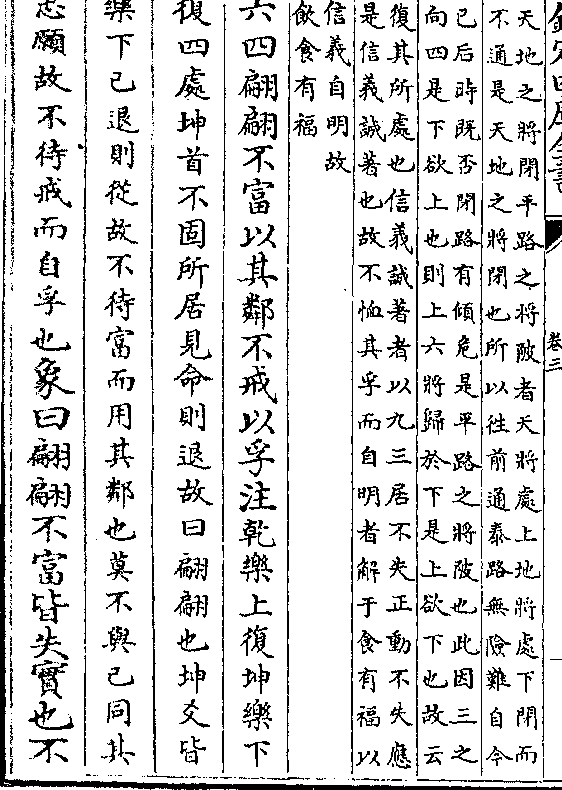 欽定四庫全書
卷三
天地之將閉平路之將陂者天將處上地將處下閉而
不通是天地之將閉也所以往前通泰路無險難自今
已后時既否閉路有傾危是平路之將陂也此因三之
向四是下欲上也則上六將歸於下是上欲下也故云
復其所處也信義誠著者以九三居不失正動不失應
是信義誠著也故不恤其孚而自明者解于食有福以
信義自明故
飲食有福
六四翩翩不富以其鄰不戒以孚注乾樂上復坤樂下
復四處坤首不固所居見命則退故曰翩翩也坤爻皆
樂下己退則從故不待富而用其鄰也莫不與己同其
志願故不待戒而自孚也象曰翩翩不富皆失實也不